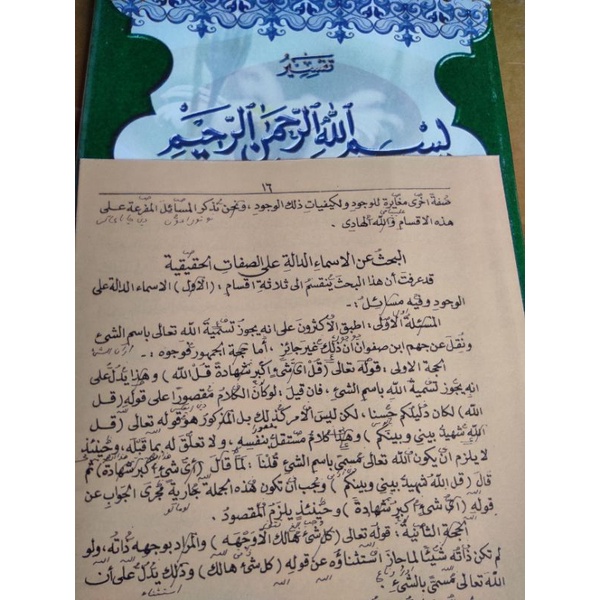 تفسير
بسم الله الرحمن الرحيم
١٦
صفة أخرى مغايرة للوجود ولكيفيات ذلك الوجود، ونحن نذكر المسائل المفرعة على
هذه الاقسام والله الهادى.
البحث عن الاسماء الدالة على الصفات الحقيقية
قد عرفت أن هذا البحث ينقسم الى ثلاثة اقسام: (الأول) الاسماء الدالة على
الوجود وفيه مسائل:-
المسئلة الأولى: اطبق الاكثرون على انه يجوز تسمية الله تعالى باسم الشئ
ونقل عن جهم ابن صفوان أن ذلك غير جائز. أما حجة الجمهور فوجوه:-
الحجة الاولى: قوله تعالى (قل أى شئ اكبر شهادة قل الله) وهذا يدل على
انه يجوز تسمية الله باسم الشئ، فان قيل: لو كان الكلام مقصورا على قوله (قل
الله) لكان دليلكم حسنا، لكن ليس الأمر كذلك بل المذكور هو قوله تعالى (قل
الله شهيد بيني وبينكم) وهذا كلام مستقل بنفسه، ولا تعلق له بما قبله، وحينئذ
لا يلزم أن يكون الله تعالى مسمى باسم الشئ قلنا: لما قال (أى شئ أكبر شهادة) ثم
قال (قل الله شهيد بيني وبينكم) وجب أن تكون هذه الجملة جارية مجرى الجواب عن
قوله (أى شئ أكبر شهادة) وحينئذ يلزم المقصود.
الحجة الثانية: قوله تعالى (كل شئ هالك الا وجهه) والمراد بوجهه ذاته، ولو
لم تكن ذاته شيئا لما جاز استثناؤه عن قوله (كل شئ هالك) وذلك يدل على أن
الله تعالى مسمى بالشئ.